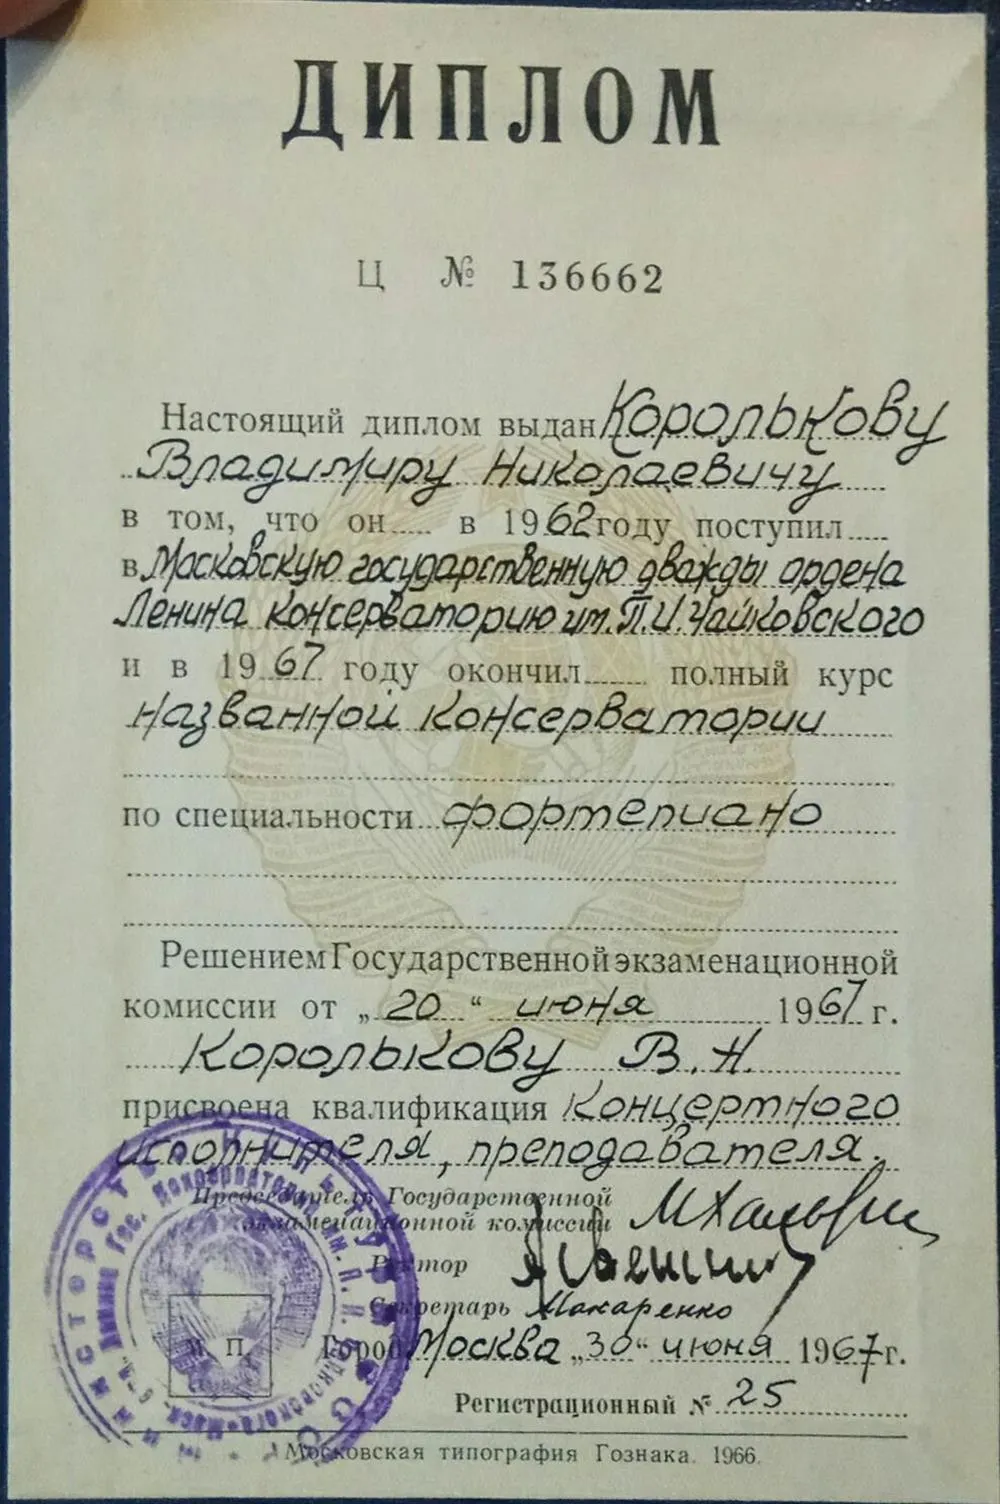 ДИПЛОМ
Ц № 136662
Настоящий диплом выдан Королькову
Владимиру Николаевичу
в том, что он в 1962 году поступил
в Московскую государственную дважды ордена
Ленина консерваторию им. П.И. Чайковского
и в 1967 году окончил полный курс
названной консерватории
по специальности фортепиано
Решением Государственной экзаменационной
комиссии от „20“ июня 1967 г.
Королькову В. Н.
присвоена квалификация концертного
исполнителя, преподавателя.
Председатель Государственной
экзаменационной комиссии
Ректор
Секретарь Макаренко
М. П. Город Москва „30“ июня 1967 г.
Регистрационный № 25
Московская типография Гознака. 1966.